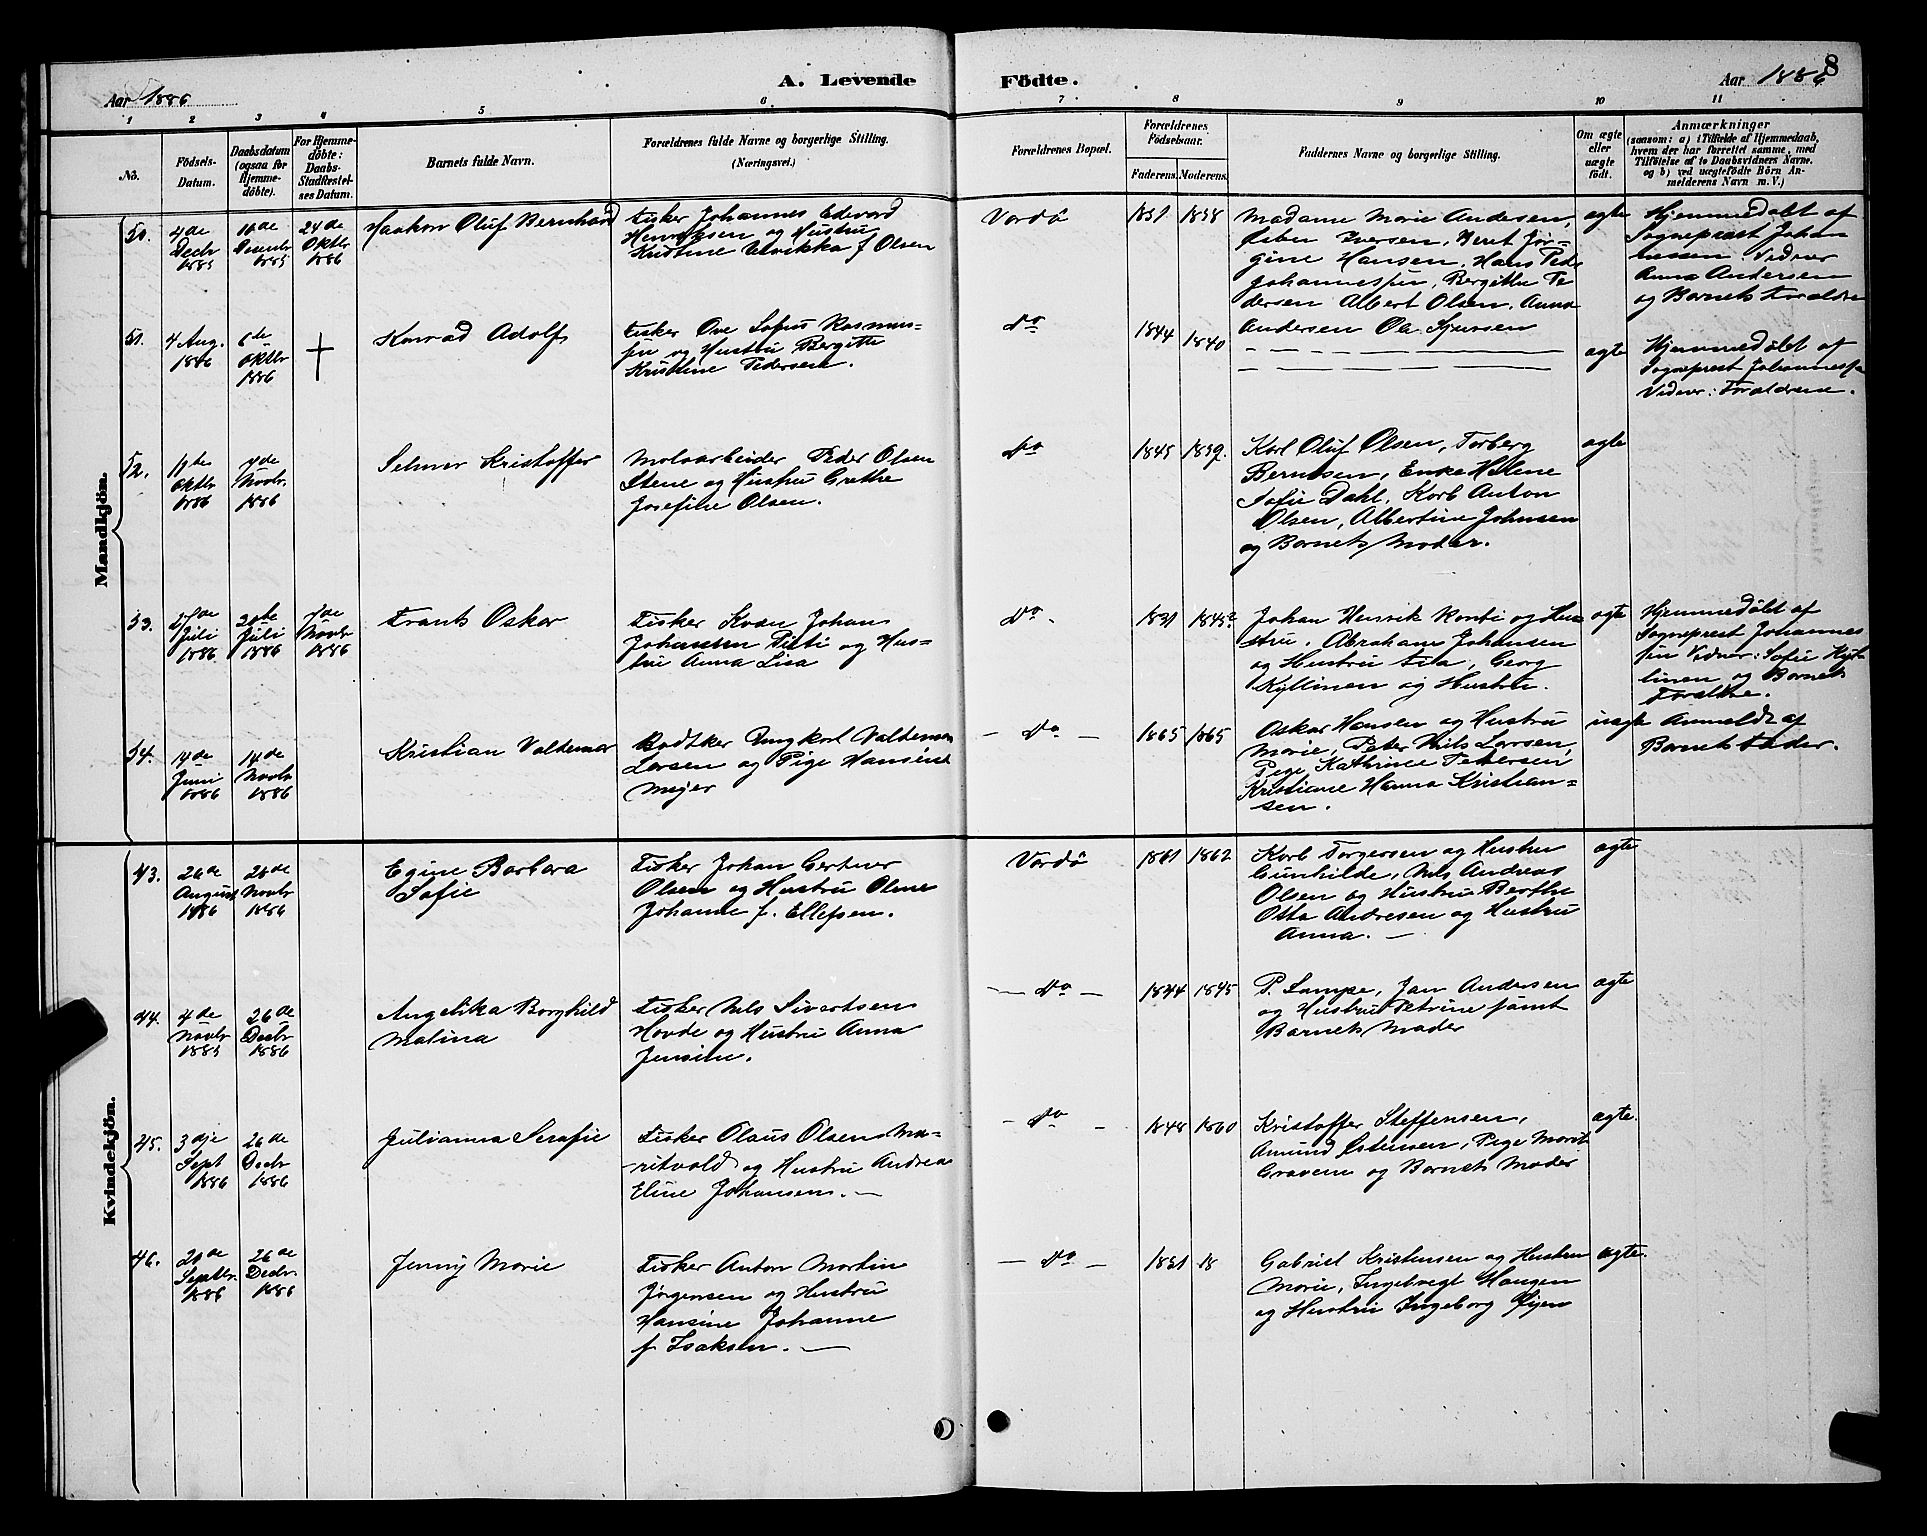 Aar 1886
A. Levende
Födte.
Aar 1886
8
1 2 3 4 5 6 7 8 9 10 11
No.
Födsels-
Datum.
Daabsdatum
(ogsaa for
Hjemme-
döbte).
For Hjemme-
döbte:
Daabs-
Stadfæstel-
ses Datum.
Barnets fulde Navn.
Forældrenes fulde Navne og borgerlige Stilling.
(Næringsvei.)
Forældrenes Bopæl.
Forældrenes
Födselsaar.
Faderens. Moderens.
Faddernes Navne og borgerlige Stilling.
Om ægte
eller
uægte
födt.
Anmærkninger
(saasom: a) i Tilfælde af Hjemmedaab,
hvem der har forrettet samme, med
Tilföielse af to Daabsvidners Navne.
og b) ved uægtefödte Börn An-
melderens Navn m. V.)
Mandkjön.
50.
4de
Decbr
1885
16de
Decenbr
1885
24de
Oktbr
1886
Haakon Oluf Bernhard
Fisker Johannes Edevard
Henriksen og Hustru
Kristine Ulrikka f Olsen
Vardö
1851 1858
Madame Marie Andersen,
Iversen, Beret Jør-
gine Hansen, Hans Pede
Johannessen, Bergitte Pe
dersen Albert Olsen, Anna
Andersen Ole Sjursen
ægte
Hjemmedøbt af
Sogneprest Johan
nessen. Vidner
Anna Andersen
og Barnets Forældre
51.
4 Aug.
1886
6te
Oktbr
1886
Konrad Adolf
Fisker Ove Sofus Rasmus-
sen og Hustru Bergitte
Kristine Pedersen.
do
1844 1840
ægte
Hjemmedøbt af
Sogneprest Johannesse
Vidner: Forældrene.
52.
19te
Oktbr
1886
7de
Novbr.
1886
Selmer Kristoffer
Moloarbeider Peder Olsen
Stene og Hustru Grethe
Josefine Olsen.
do
1845 1859.
Karl Oluf Olsen, Torberg
Berntsen, Enke Helene
Sofie Dahl, Karl Anton
Olsen, Albertine Johnsen
og Barnets Moder.
ægte
53.
27de
Juli
1886
28te
Juli
1886
7de
Novbr
1886
Frants Oskar
Fisker Kvæn Johan
Johansen Pieti og Hus-
tru Anna Lisa
do.
1831 1845?
Johan Henrik Konti og Hu
stru, Abraham Johansen
og Hustru Eva, Georg
Kyllinen og Hustru.
ægte
Hjemmedøbt af
Sogneprest Johannes
sen Vidner: Sofie Kyl-
linen og Barnets
Forældre.
54.
14de
Juni
1886
14de
Novbr
1886
Kristian Valdemar
Bødtker Ungkarl Valdemar
Larsen og Pige Hansine
Mejer
– do –
1865 1865
Oskar Hansen og Hustru
Marie, Peter Nils Larsen,
Pige Kathrine Petersen
Kristiane Hanna Kristian-
sen.
uægte
Anmeldt af
Barnets Fader.
Kvindekjön.
43.
26de
August
1886
26de
Novbr
1886
Egine Barbara
Sofie
Fisker Johan Gertner
Olsen og Hustru Oline
Johanne f. Ellefsen.
Vardö
1861 1862
Karl Torgersen og Hustru
Gunhilde, Nils Andreas
Olsen og Hustru Berthe
Otto Andresen og Hustru
Anna. –
ægte
44.
4de
Novbr
1885
26de
Decbr
1886
Angelika Borghild
Malina
Fisker Nils Sivertsen
Hovde og Hustru Anna
Jensine.
– do –
1844 1845
P. Lampe, Jan Andersen
og Hustru Petrine samt
Barnets Moder
ægte
45.
3dje
Sept
1886
26de
Decbr
1886
Julianna Serafie
Fisker Olaus Olsen Ma-
ritvold og Hustru Andrea
Eline Johansen. –
– do –
1848 1860
Kristoffer Steffensen,
Amund Østensen, Pige Marit
Gravem og Barnets Moder
ægte.
46.
20de
Septbr.
1886
26de
Decbr.
1886
Jenny Marie
Fisker Anton Martin
Jørgensen og Hustru
Hansine Johanne
f. Isaksen. –
– do –
1851 18
Gabriel Kristensen og Hustru
Marie, Ingebregt Haugen
og Hustru Ingeborg Øyen
ægte.